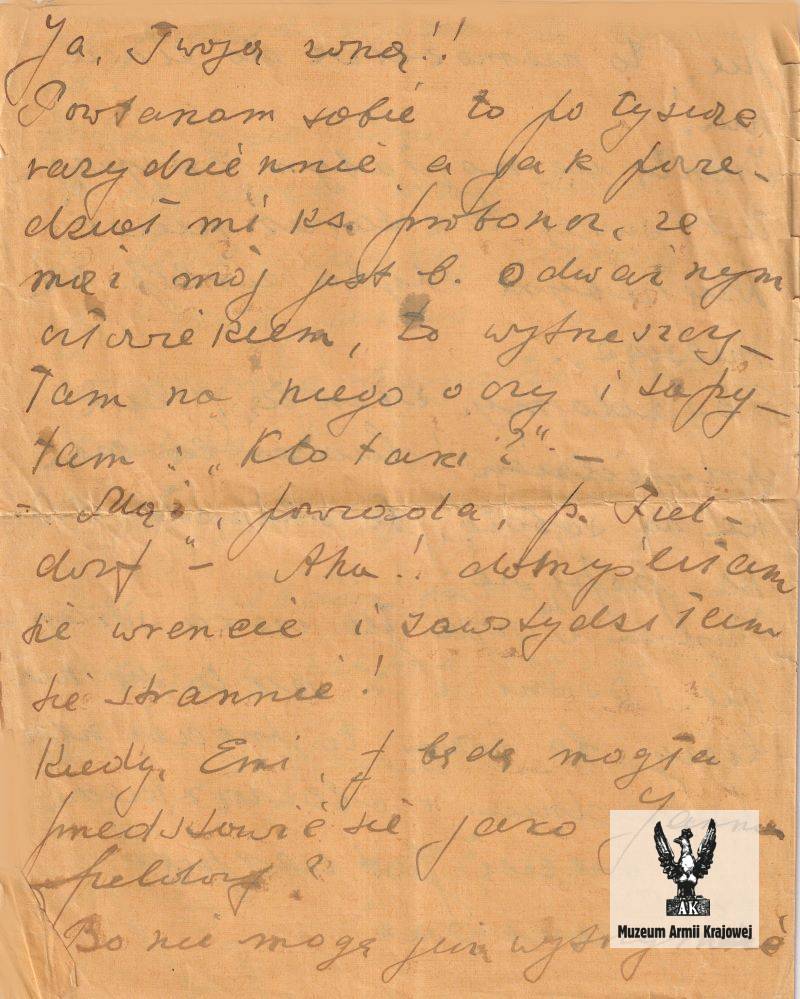 Ja, Twoją żoną!!
Powtarzam sobie to po tysiąc
razy dziennie, a jak powie-
dział mi ks. proboszcz, że
mąż mój jest b. odważnym
człowiekiem, to wytrzeszczy-
łam na niego oczy i zapy-
tam: „Kto taki?“ –
– Mąż, powiada, p. Fiel-
dorf“ – Aha! domyśliłam
się wrencie i zawstydziłam
się strannie!
Kiedy, Emi, będę mogła
predstawić się jako Janina
Fieldorf?
Bo nie mogę już wytrzymać
AK
Muzeum Armii Krajowej